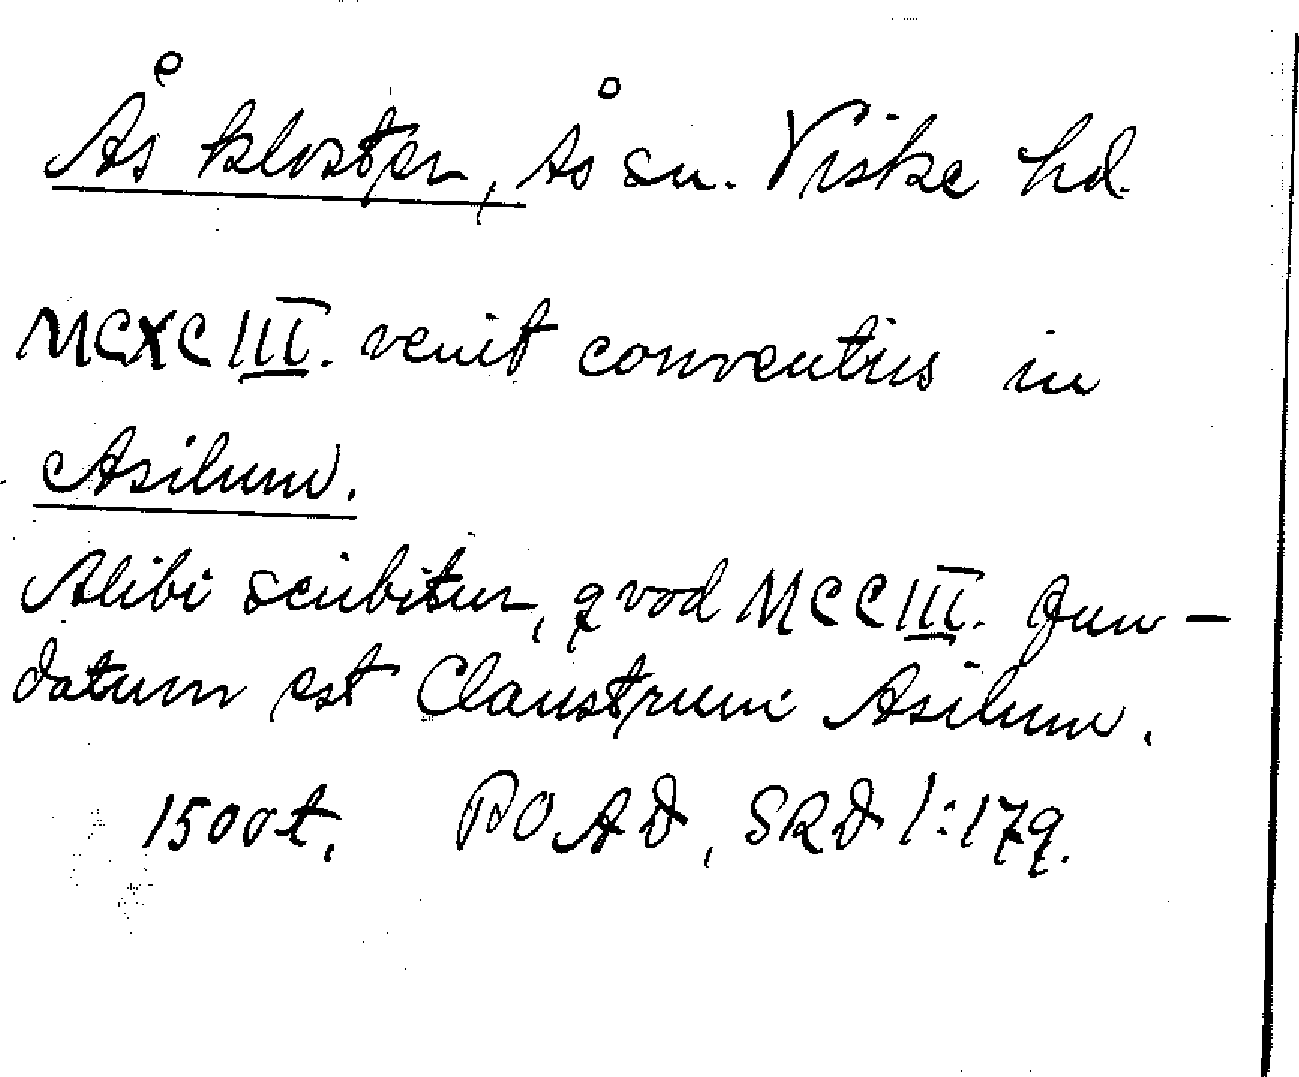 Ås kloster, Ås sn. Viske hd.
MCXCIII. venit conventus in
Asilum.
Alibi scribitur, qvod MCCIII. fun-
datum est Claustrum Asilum.
1500t, POAD, SRD 1:179.